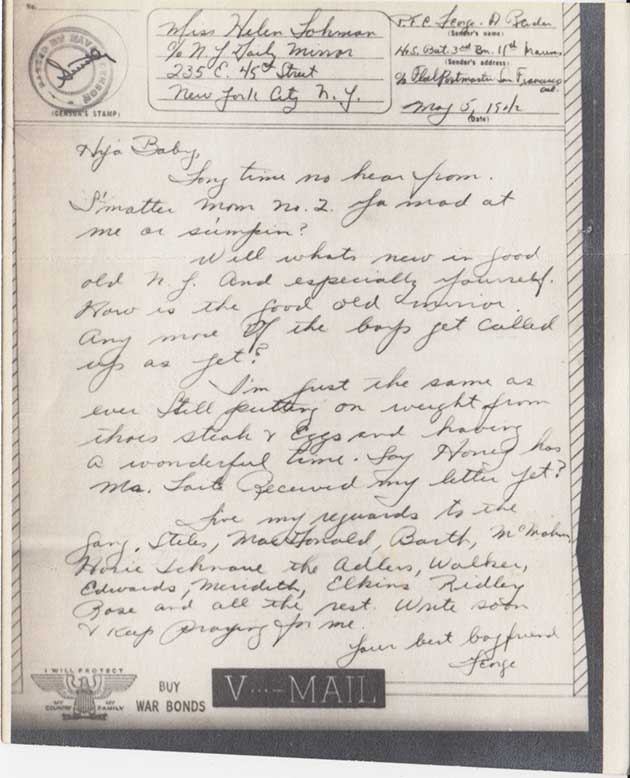 No.
PASSED BY NAVAL CENSOR
(CENSOR'S STAMP)
Miss Helen Lohman
c/o N.Y. Daily Mirror
235 E. 45th Street
New York City N.Y.
P.F.C. George A
(Sender's name)
H.&S. Bat. 3rd Bn. 11th Marines
(Sender's address)
c/o Fleet Postmaster San Francisco
Cal.
May 5, 1942
(Date)
Hya Baby,
Long time no hear from.
S'matter Mom No. 2. Ya mad at
me or sumpin?
Well whats new in good
old N.Y. And especially yourself.
How is the good old mirror.
Any more of the boys get called
up as yet?
I'm just the same as
ever still putting on weight from
thoes steak & Eggs and having
a wonderful time. Say Honey has
Ma. Received my letter yet?
Give my reguards to the
gang. Stiles, MacDonald, Barth, McMahon
the Adlers, Walker,
Edwards, Merideth, Elkins Ridley
Rose and all the rest. Write soon
& Keep Praying for me.
Your best boyfriend
George
I WILL PROTECT
MY COUNTRY MY FAMILY
BUY
WAR BONDS
V···—MAIL